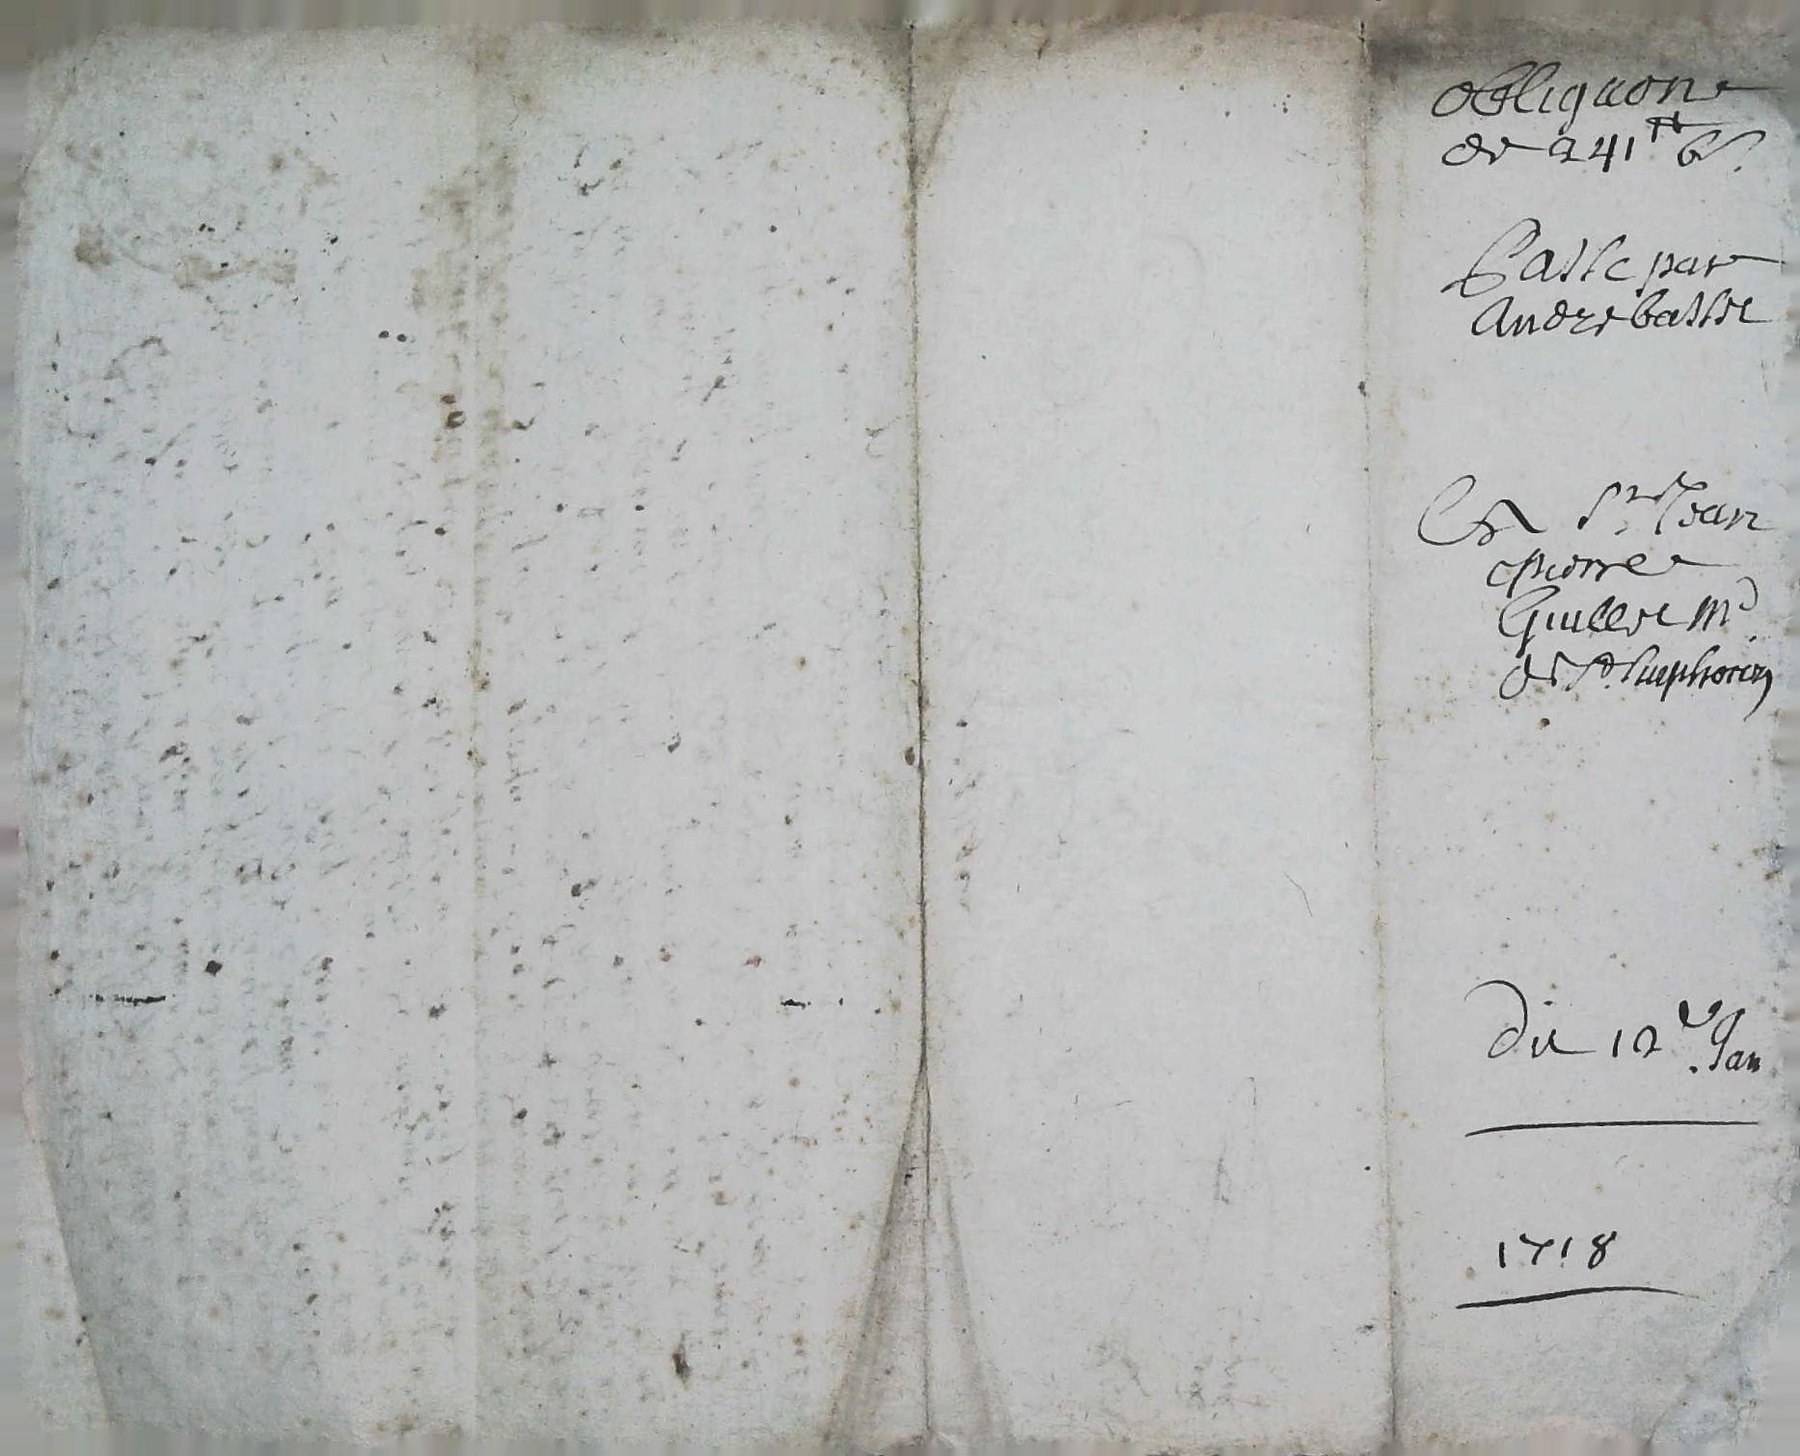 obligaon
de 241 tt 6 s.
Passe par
Andre basset
Et Sr Jean
pierre
Guillet md
de St Simphorien
Du 12e Jan
1718